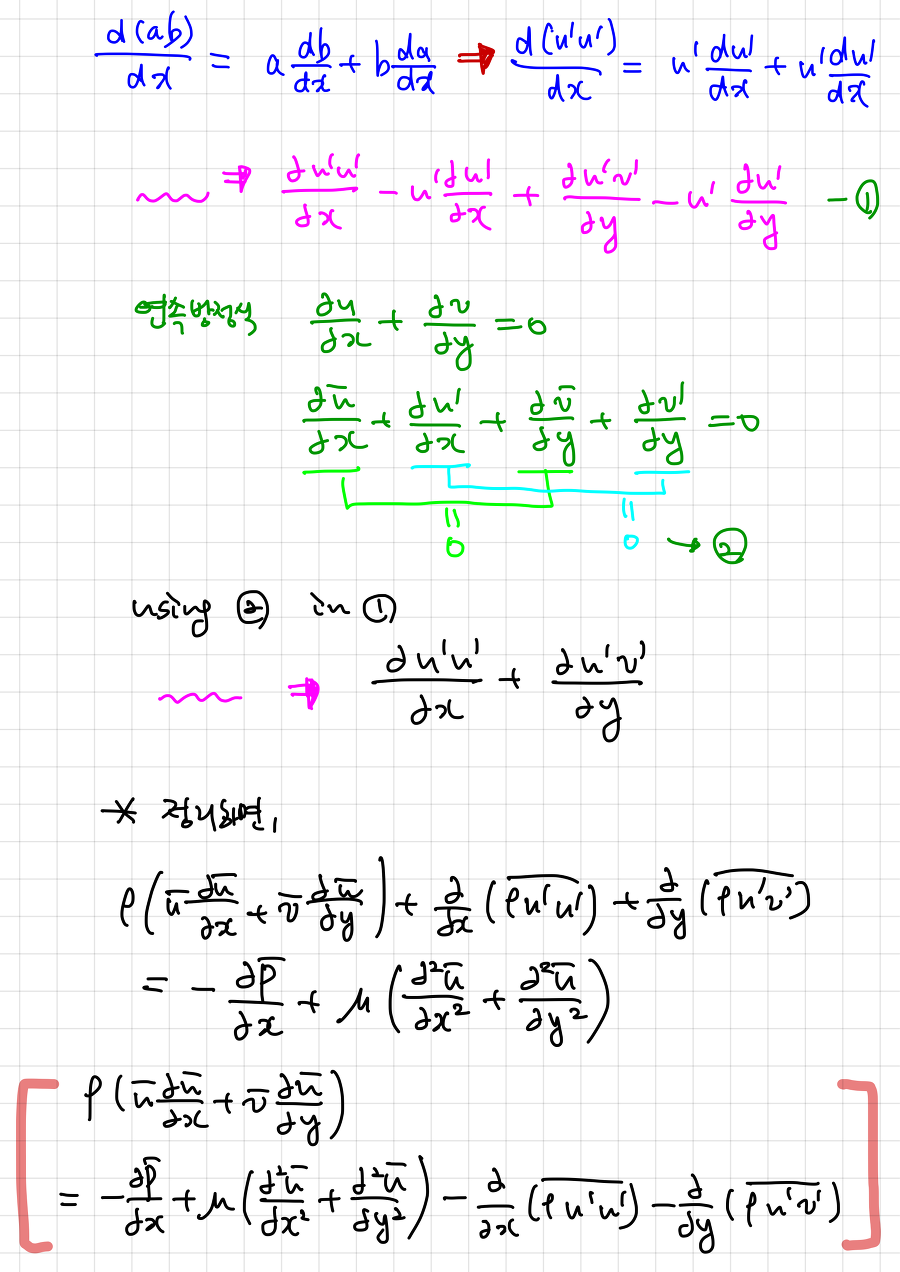 d(ab)/dx = a db/dx + b da/dx ⇒ d(u'u')/dx = u' du'/dx + u' du'/dx
⇒ ∂u'u'/∂x - u' ∂u'/∂x + ∂u'v'/∂y - u' ∂u'/∂y - ①
연속방정식 ∂u/∂x + ∂v/∂y = 0
∂ū/∂x + ∂u'/∂x + ∂v̄/∂y + ∂v'/∂y = 0
= 0 = 0 → ②
using ② in ①
⇒ ∂u'u'/∂x + ∂u'v'/∂y
* 정리하면,
ρ(ū ∂ū/∂x + v̄ ∂ū/∂y) + ∂/∂x (\overline{ρu'u'}) + ∂/∂y (\overline{ρu'v'})
= - ∂p̄/∂x + μ(∂²ū/∂x² + ∂²ū/∂y²)
[ρ(ū ∂ū/∂x + v̄ ∂ū/∂y)
= - ∂p̄/∂x + μ(∂²ū/∂x² + ∂²ū/∂y²) - ∂/∂x (\overline{ρu'u'}) - ∂/∂y (\overline{ρu'v'})]